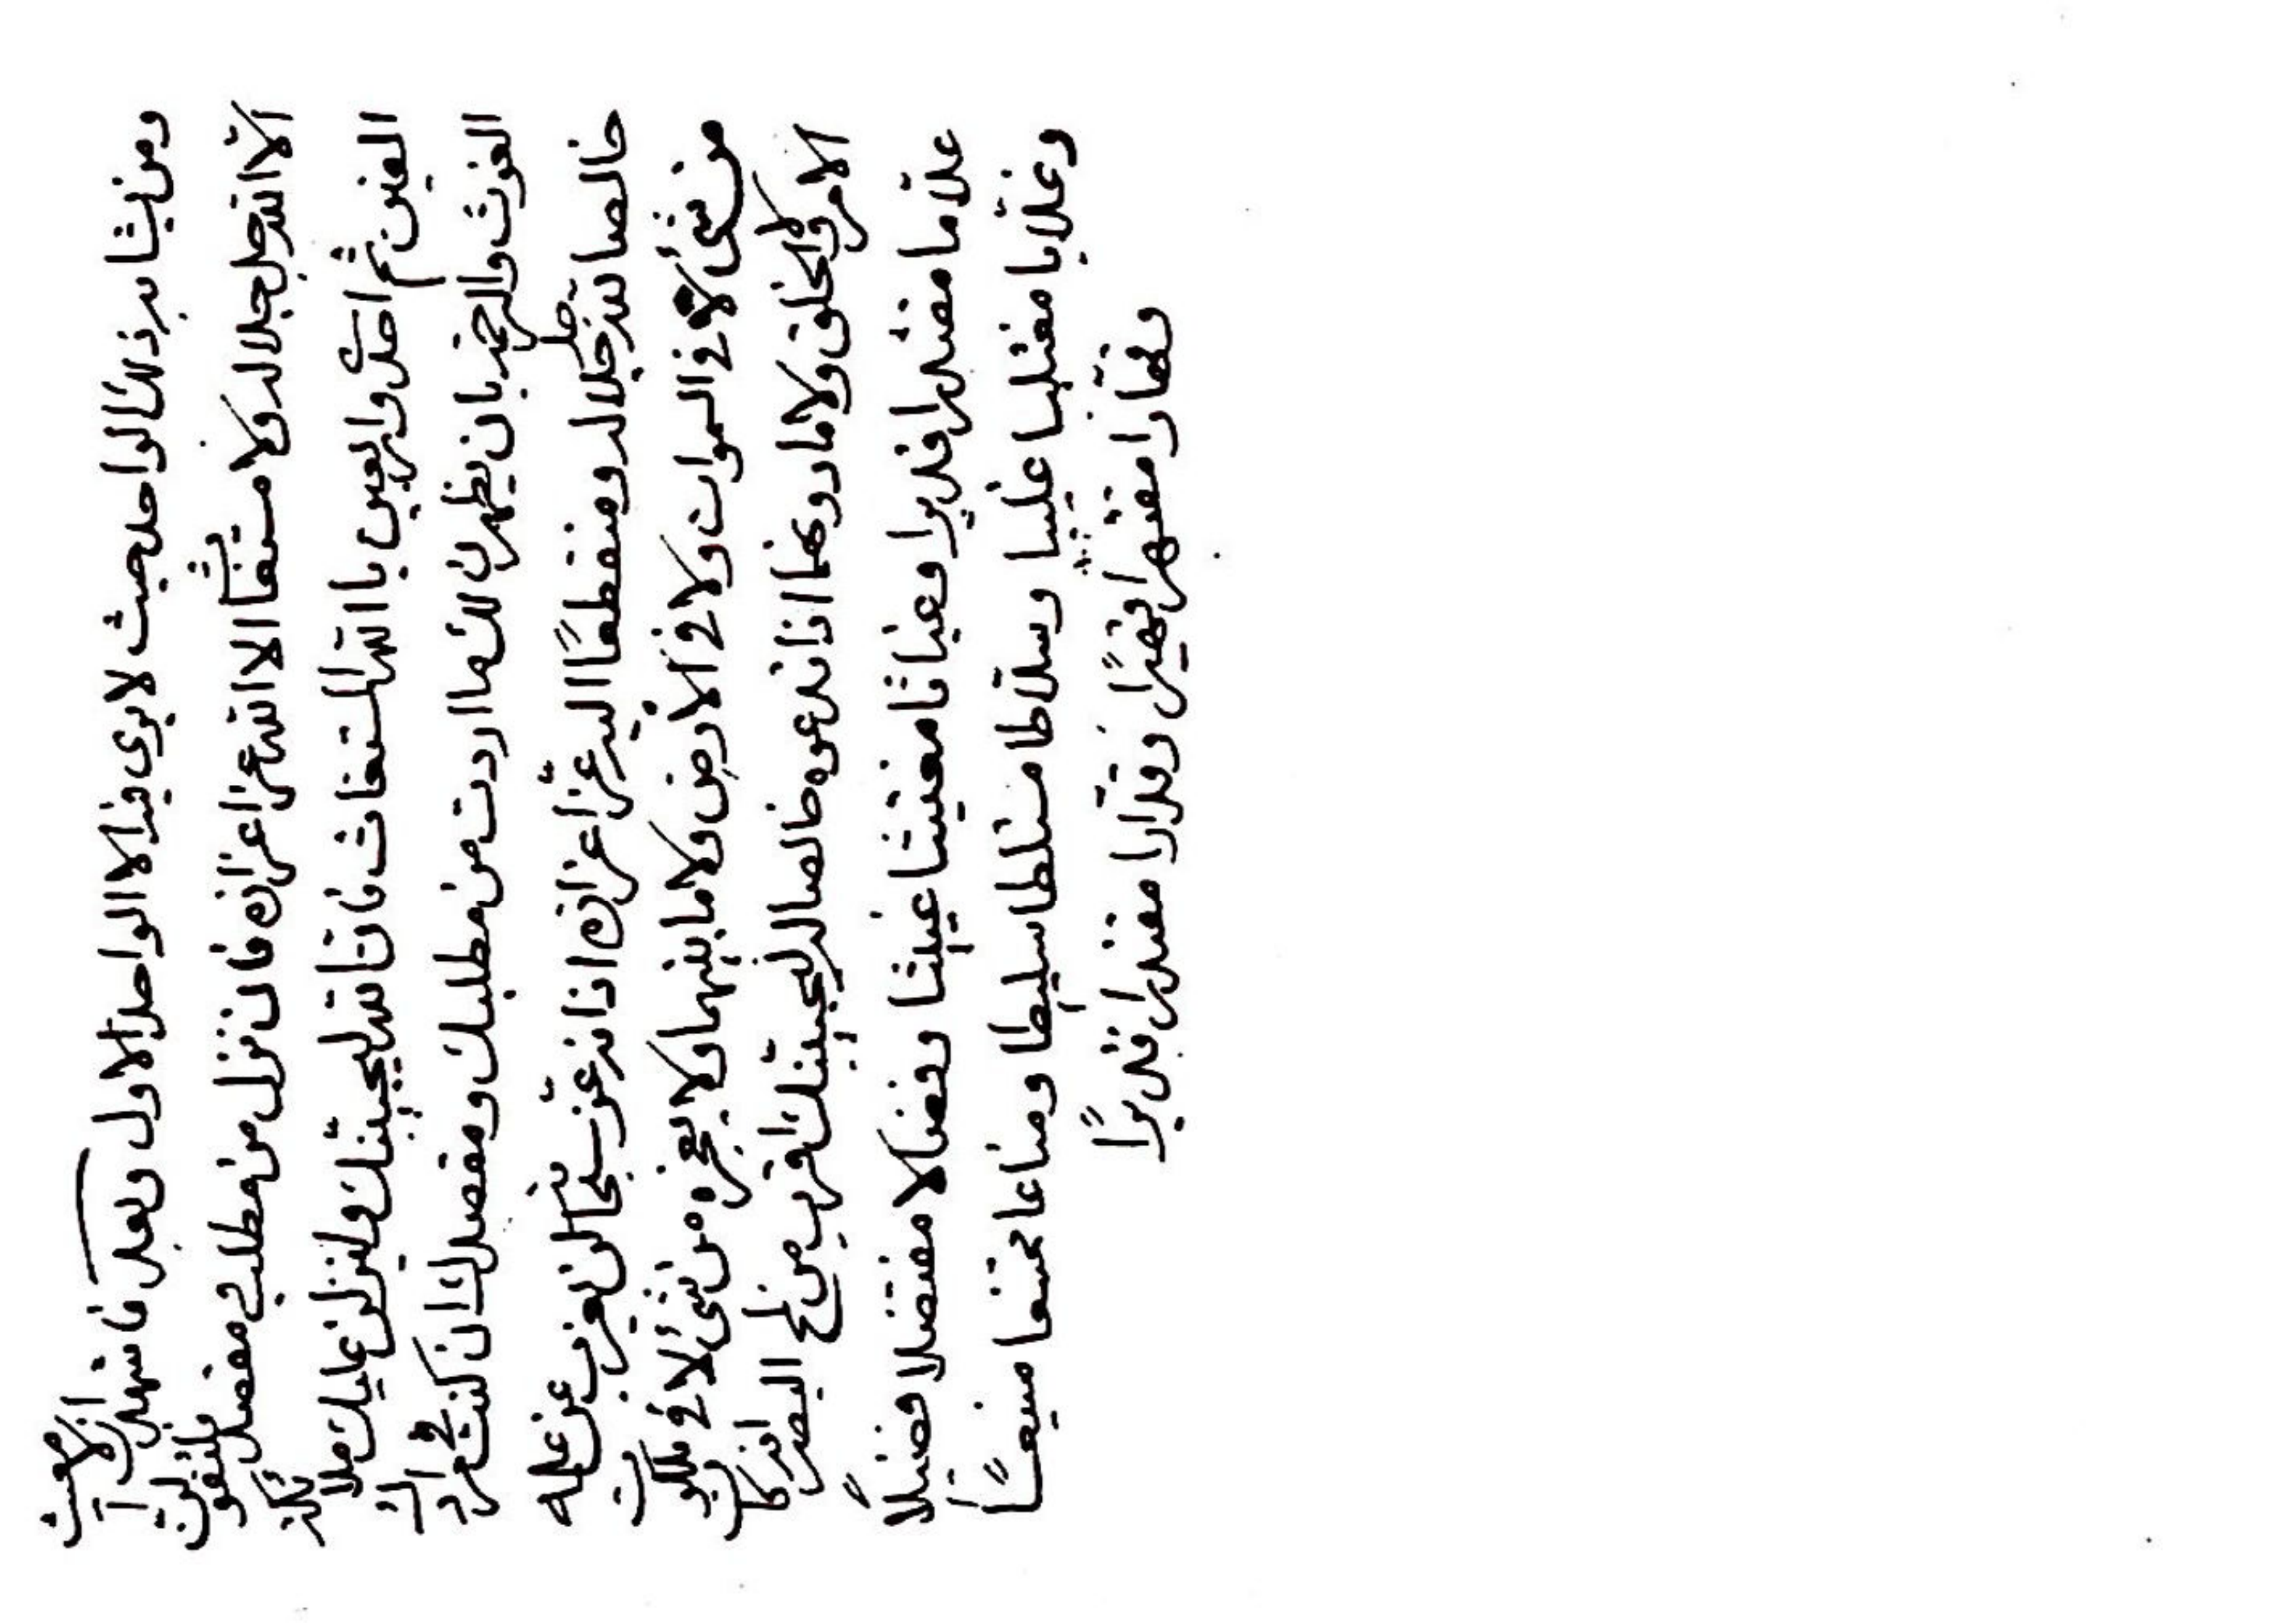 ومن يشاء يرد ذلك الواحد حيث لا يرى فيه الا الواحد الاول وبعد فاشهد ان لا مغيث
الا الله جل جلاله ولا مستغاثا الا الله عز اعزازه فان نزل من مطلب مقصد
الفين ثم احد واربعين يا الله المستغاث فان الله ليجيبنك ولينزلن عليك ملائكة
الغوث والرحمة بان يظهرن لك ما اردت من مطلبك ومقصدك ان كنت في امرك
خالصا لله جل جلاله ومنقطعا اليه عز اعزازه اذ انه عز سبحانه لن يعزب عن علمه
من شيء لا في السموات ولا في الارض ولا ما بينهما ولا يعجزه من شيء لا في ملكوت
الامر والخلق ولا ما دونهما اذا تدعوه خالصا له ليجيبنك اقرب من لمح البصر انه كان
علاما مقتدرا قديرا وغياثا مغتيثا غييثا وفضالا مفتضلا فضيلا
وغلابا مغتلبا غليبا وسلاطا مستلطا سليطا ومناعا ممتنعا منيعا
وقهارا مقتهرا قهيرا وقدارا مقتدرا قديرا